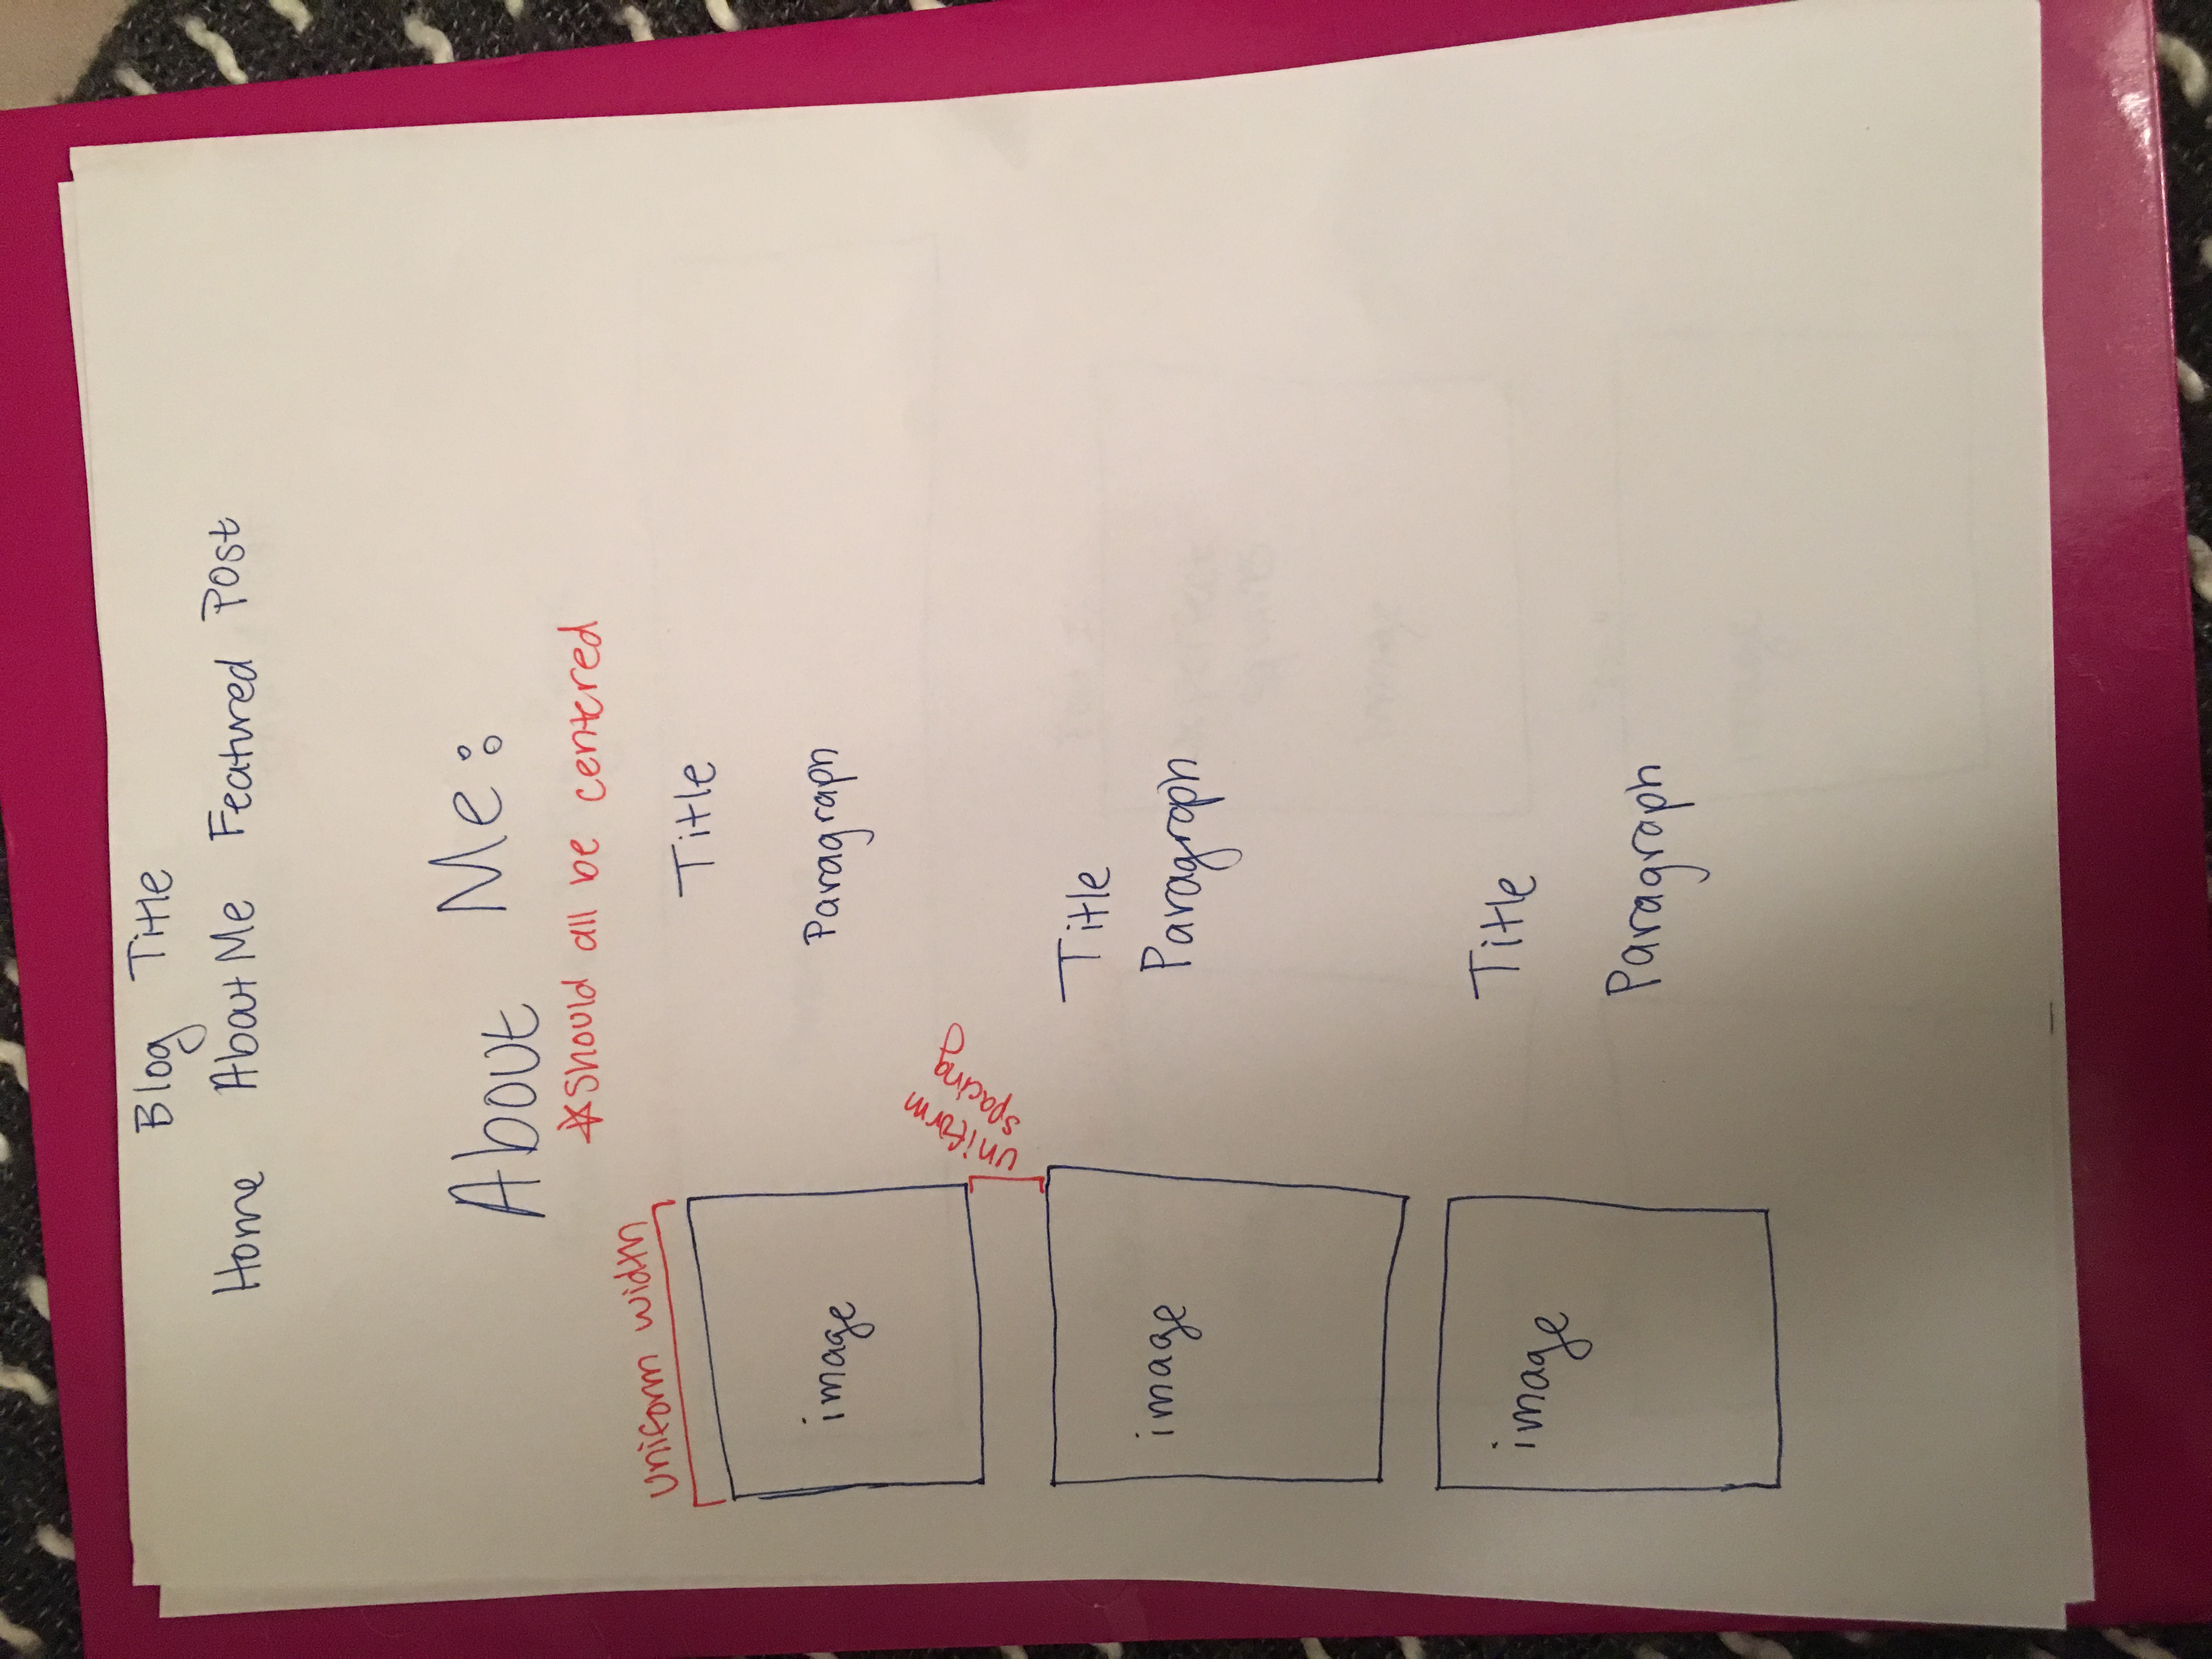 Blog Title
Home About Me Featured Post
About Me:
*Should all be centered
uniform width
Title
image
Paragraph
uniform
spacing
Title
image
Paragraph
Title
image
Paragraph